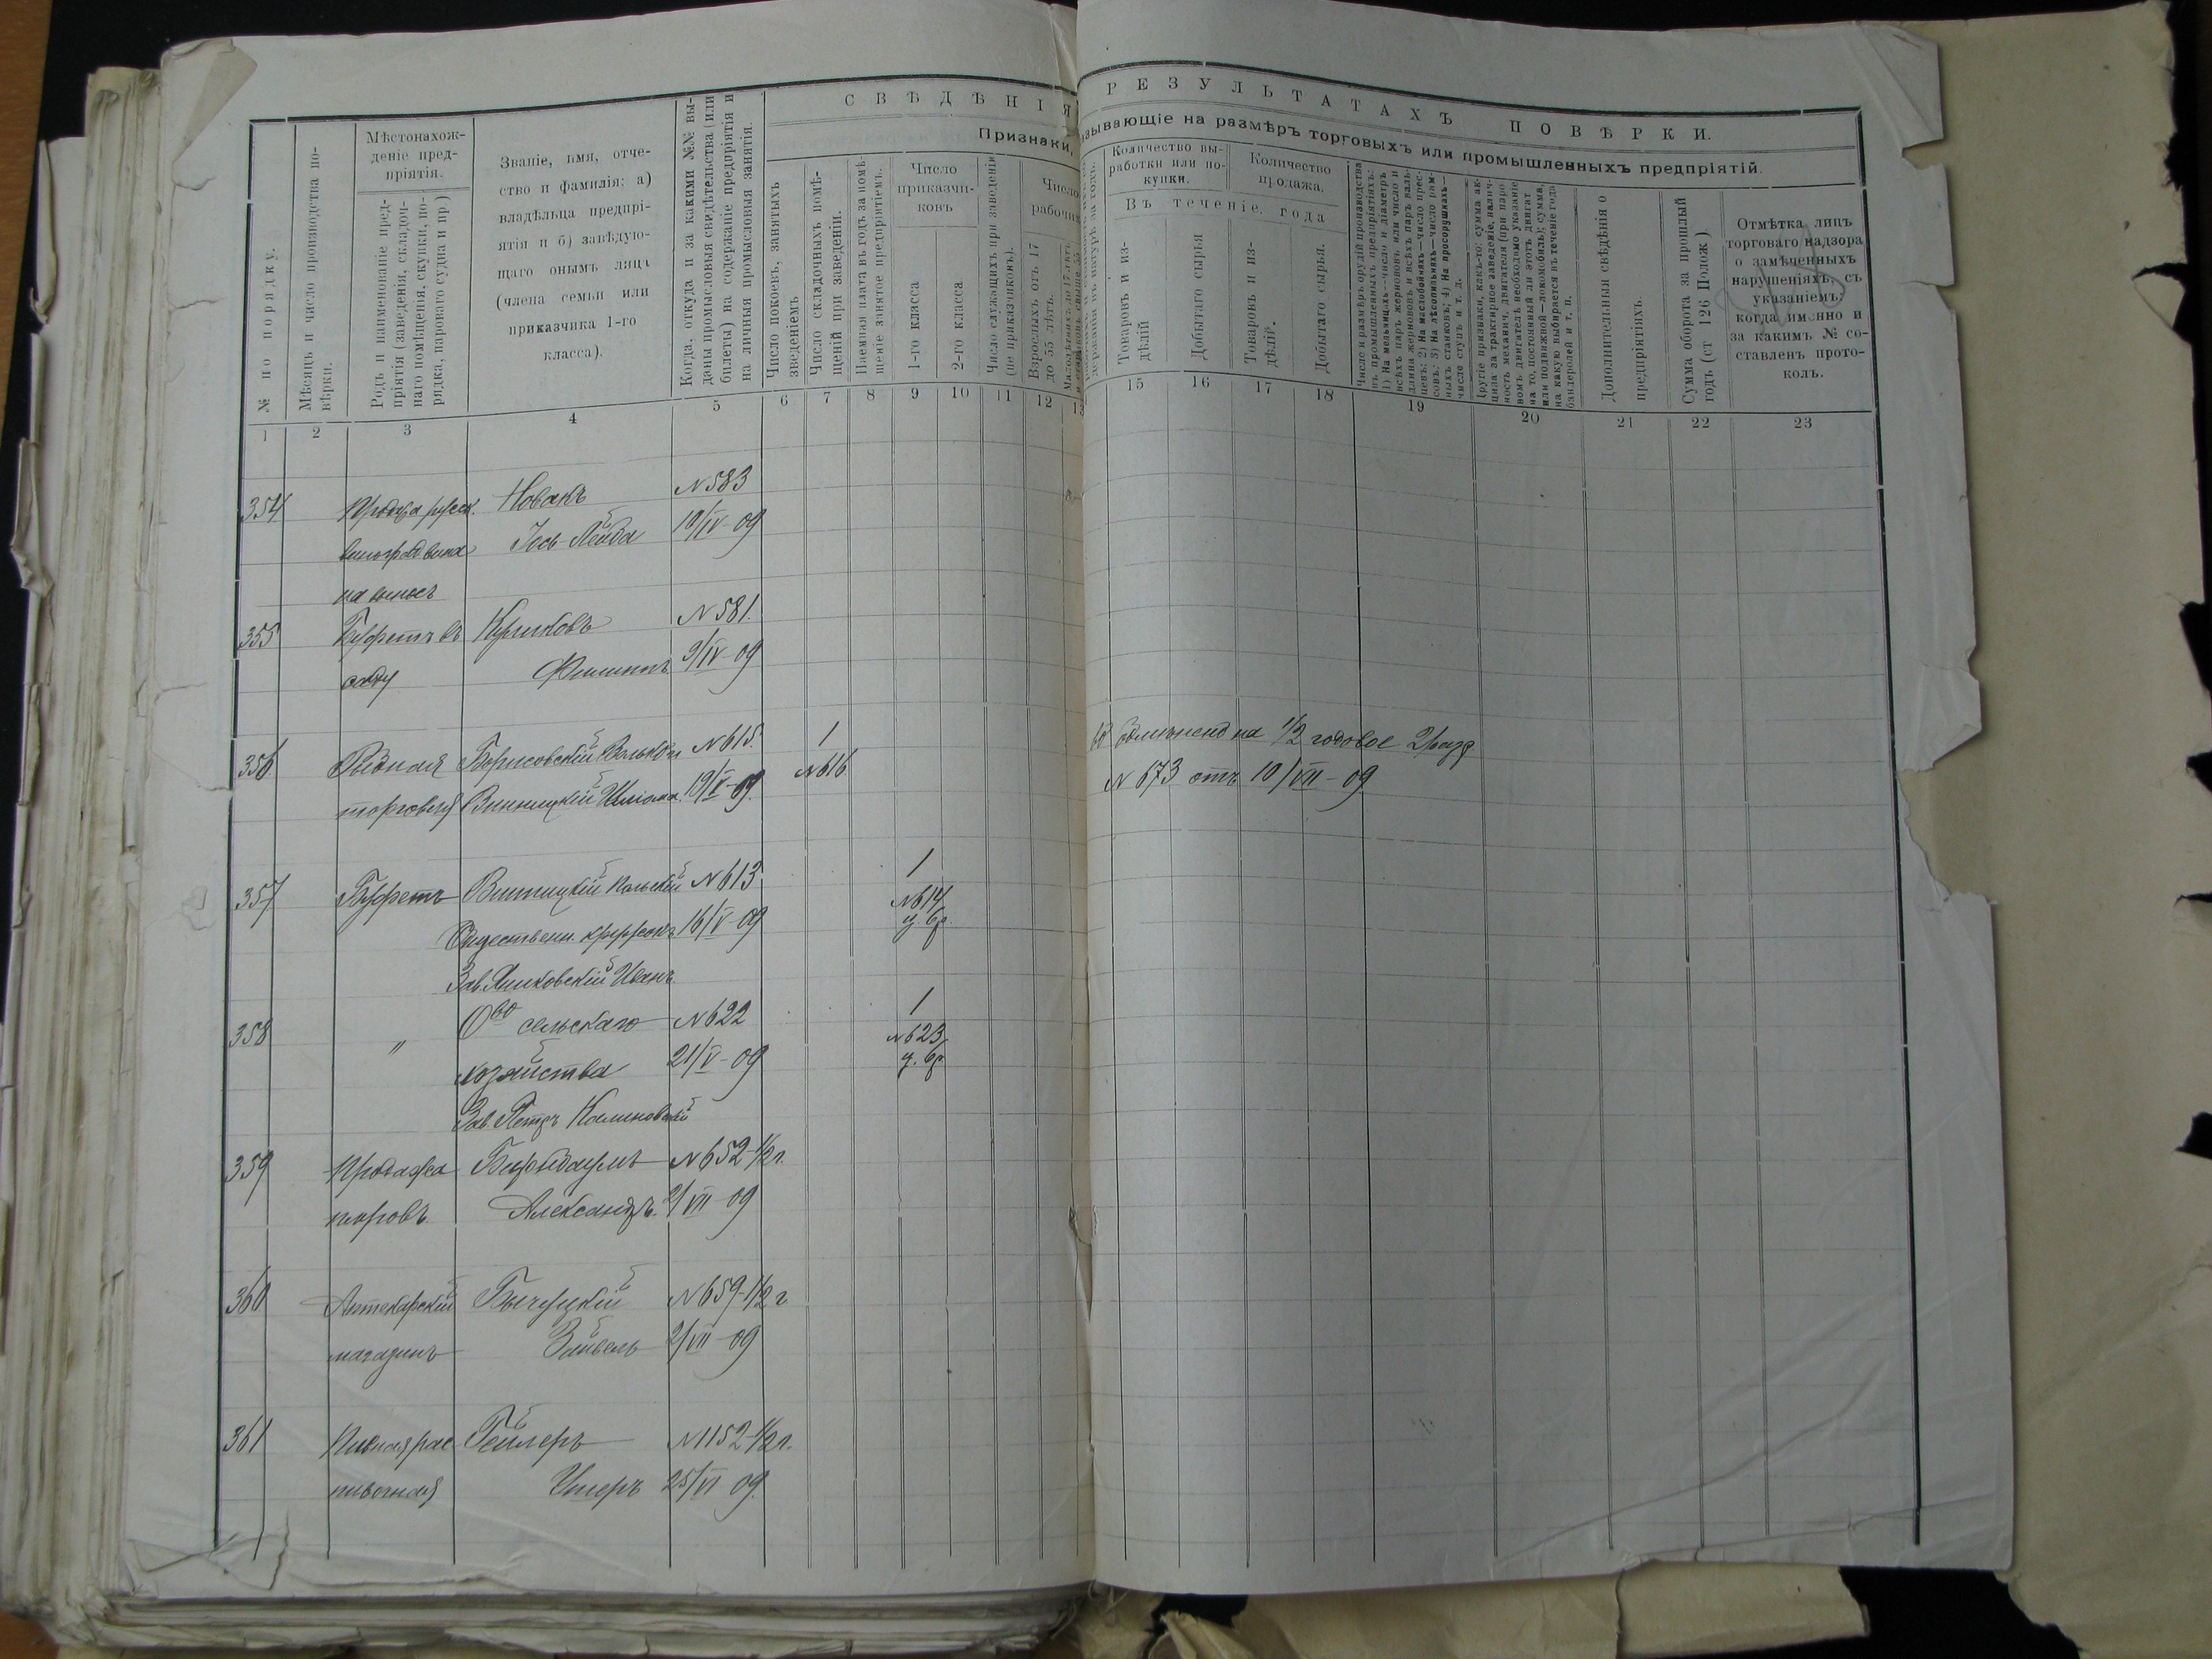 СВѢДѢНІЯ
РЕЗУЛЬТАТАХЪ ПОВѢРКИ.
Признаки,
зывающіе на размѣръ торговыхъ или промышленныхъ предпріятій.
№ по порядку.
Мѣсяцъ и число производства по-
вѣрки.
Мѣстонахож-
деніе пред-
пріятія.
Родъ и наименованіе пред-
пріятія (заведенія, складоч-
наго помѣщенія, скупки, по-
рядка, парового судна и пр)
Званіе, имя, отче-
ство и фамилія: а)
владѣльца предпрі-
ятія и б) завѣдую-
щаго онымъ лица
(члена семьи или
приказчика 1-го
класса).
Когда, откуда и за какими №№ вы-
даны промысловыя свидѣтельства (или
билеты) на содержаніе предпріятія и
на личныя промысловыя занятія.
Число покоевъ, занятыхъ
зведеніемъ
Число складочныхъ помѣ-
щеній при заведеніи.
Наемная плата въ годъ за помѣ-
щеніе занятое предпріятіемъ.
Число
приказчи-
ковъ
1-го класса
2-го класса
Число служащихъ при заведеніи
(не приказчиковъ).
Число
рабочихъ
Взрослыхъ отъ 17
до 55 лѣтъ.
Количество вы-
работки или по-
купки.
Количество
продажа.
Въ теченіе года
Товаровъ и из-
дѣлій
Добытаго сырья
Товаровъ и из-
дѣлій.
Добытаго сырья.
Число и размѣръ орудій производства
въ промышленныхъ предпріятіяхъ:
1) На мельницахъ—число и діаметръ
всѣхъ паръ жернововъ или число и
длина жернововъ и всѣхъ паръ валь-
цевъ: 2) На маслобойняхъ—число прес-
совъ; 3) На лѣсопильняхъ—число рам-
ныхъ станковъ; 4) На просорушкахъ—
число ступъ и т. д.
Другіе признаки, какъ-то: сумма ак-
циза за трактирное заведеніе, налич-
ность механич. двигателя (при паро-
вомъ двигателѣ необходимо указаніе
на то, постоянный ли этотъ двигат.
или подвижной—локомобиль); сумма,
на какую выбирается въ теченіе года
бандеролей и т. п.
Дополнительныя свѣдѣнія о
предпріятіяхъ.
Сумма оборота за прошлый
годъ (ст 126 Полож )
Отмѣтка лицъ
торговаго надзора
о замѣченныхъ
нарушеніяхъ, съ
указаніемъ:
когда именно и
за какимъ № со-
ставленъ прото-
колъ.
1 2 3 4 5 6 7 8 9 10 11 12 15 16 17 18 19 20 21 22 23
354 Продажа русск. Новакъ №583
виноград вина Іось-Лейба 10/IV-09
на выносъ
355 Буфетъ въ Куликовъ №581.
саду Филиппъ 9/IV-09
356 Рыбная Борисовскій №615. 1
торговля Винницкій Шлiома 19/V-09. №616
обмѣненъ на 1/2 годовое 2 разр.
№673 отъ 10/VII-09
357 Буфетъ Винницкій Польскій №613 1
Обществен. кружокъ 16/V-09 №614
Зав. Янковскій Иванъ
358 " О-во сельскаго №622 1
хозяйства 21/V-09 №623
Зав. Петръ Калиновскій
359 Продажа Бирнбаумъ №652-1/2 г.
Александръ. 2/VII-09
360 Аптекарскій №659-1/2 г
магазинъ Зайвель 2/VII-09
361 Пивная рас Гейлеръ №1152-1/2 г.
пивочная 25/VI 09.